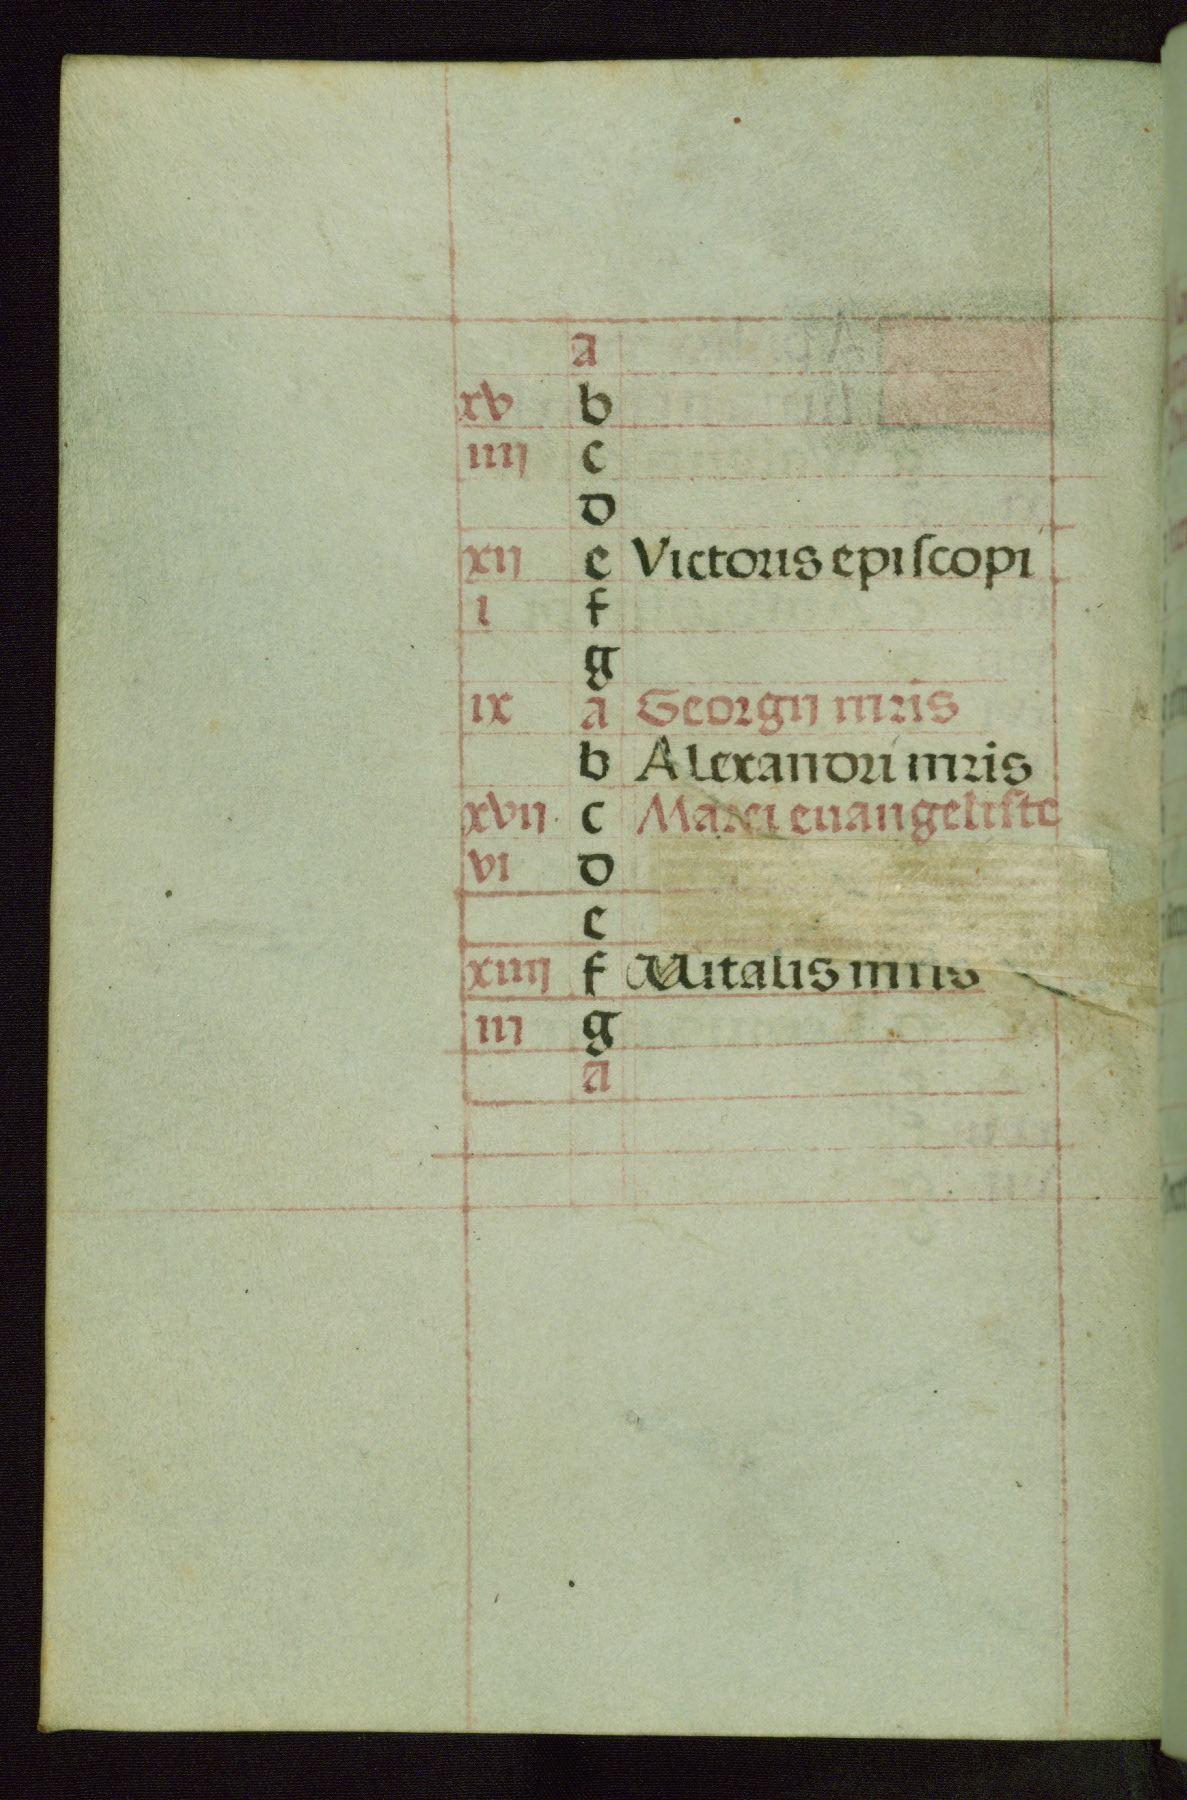 a
xv b
iiij c
d
xij e Victoris episcopi
i f
g
ix a Georgij mris
b Alexandri mris
xvij c Marci euangeliste
vi d
e
xiiij f Uitalis mris
iij g
a